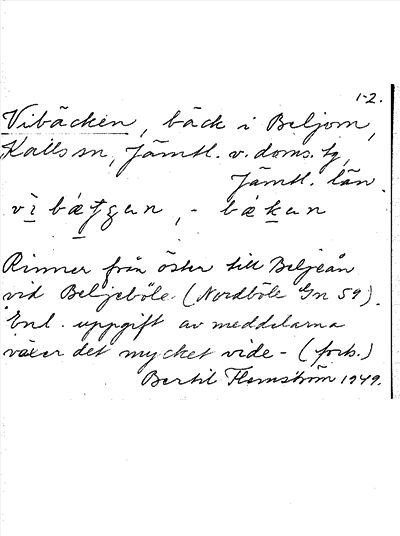 1-2.
Vibäcken, bäck i Beljom,
Kalls sn, Jämtl. v. doms. tg,
Jämtl. län.
vì bæʈʂɐn, - bækɐn
Rinner från öster till Beljeån
vid Beljeböle (Nordböle Gn 59).
Enl. uppgift av meddelarna
växer det mycket vide - (forts.)
Bertil Flemström 1949.